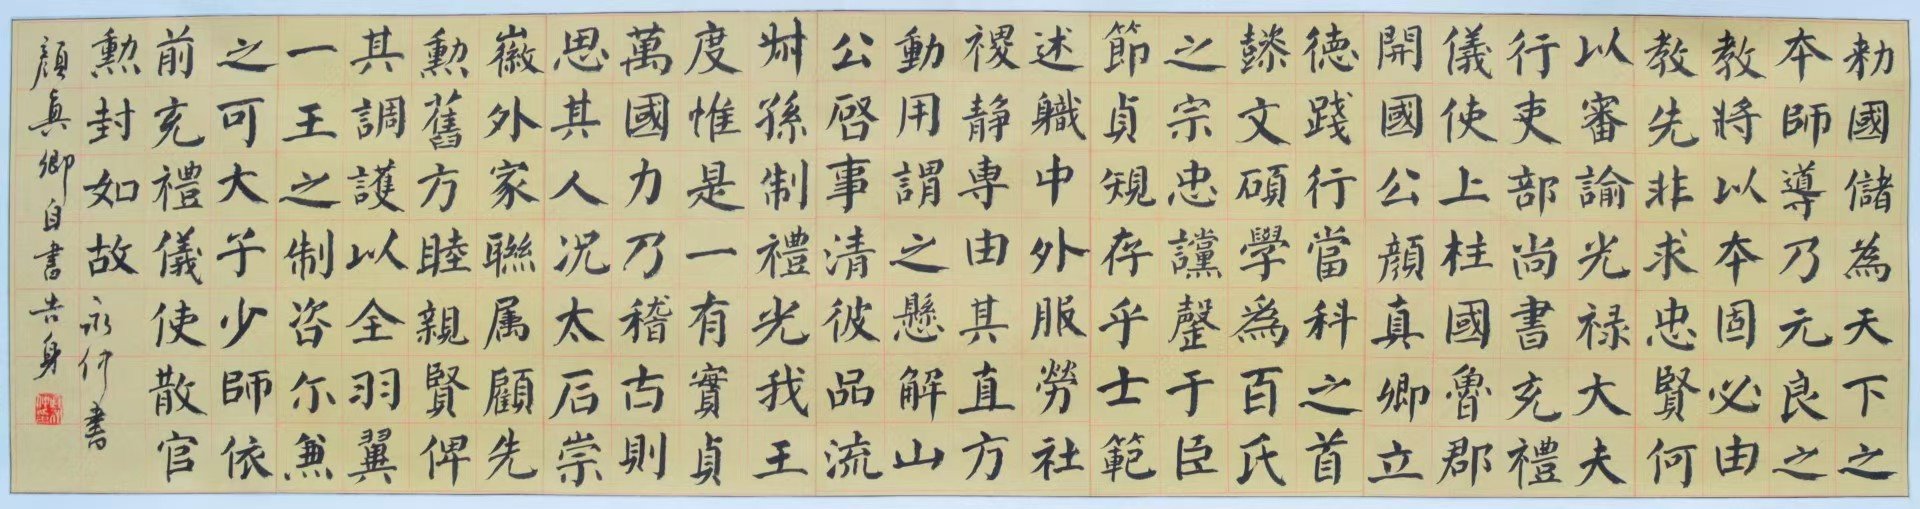 勅國儲為天下之
本師導乃元良之
教將以本固必由
教先非求忠賢何
以審諭光禄大夫
行吏部尚書充禮
儀使上柱國魯郡
開國公顔真卿立
德踐行當科之首
懿文碩學為百氏
之宗忠讜罄于臣
節貞規存乎士範
述職中外服勞社
稷静専由其直方
動用謂之懸解山
公啓事清彼品流
叔孫制禮光我王
度惟是一有實貞
萬國力乃稽古則
思其人况太后崇
徽外家聯属顧先
勲舊方睦親賢俾
其調護以全羽翼
一王之制咨尔兼
之可太子少師依
前充禮儀使散官
勲封如故 永竹書
顔真卿自書告身